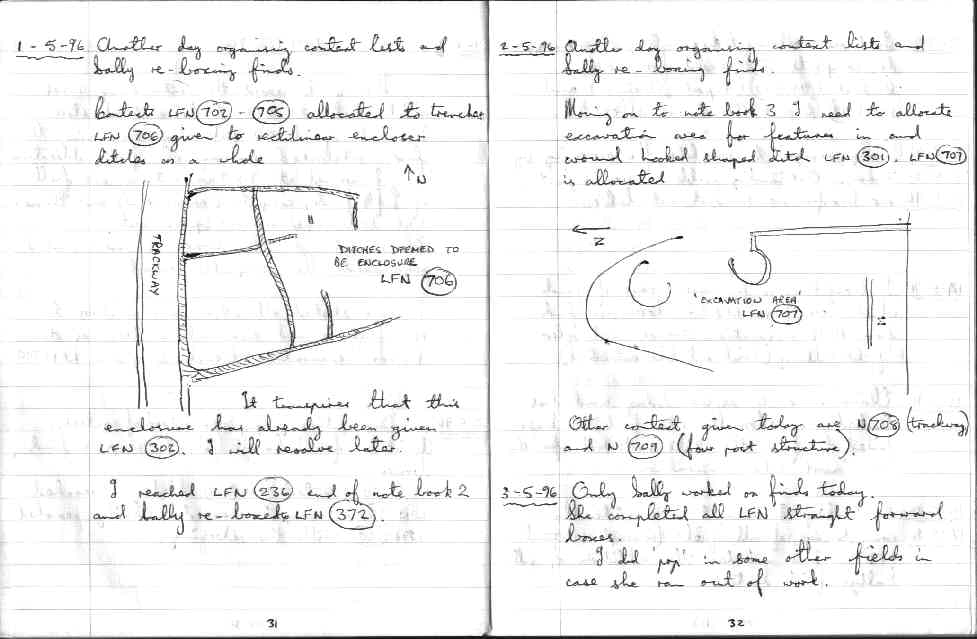 1-5-96 Another day organising context lists and
Sally re-boxing finds.
Contexts LFN 702 - 705 allocated to trenches
LFN 706 given to rectilinear encloser
ditches as a whole
↑N
TRACKWAY
DITCHES DEEMED TO
BE ENCLOSURE
LFN 706
It transpires that this
enclosure has already been given
LFN 302. I will resolve later.
I reached LFN 236 end of note book 2
and Sally re-boxed LFN 372.
31
2-5-96 Another day organising context lists and
Sally re-boxing finds.
Moving on to note book 3 I need to allocate
excavation area for features in and
around hooked shaped ditch LFN 301. LFN 707
is allocated
N
'EXCAVATION AREA'
LFN 707
Other context given today are N 708 (trackway)
and N 709 (four post structure).
3-5-96 Only Sally worked on finds today.
She completed all LFN straight forward
boxes.
I did 'pop' in some other fields in
case she ran out of work.
32